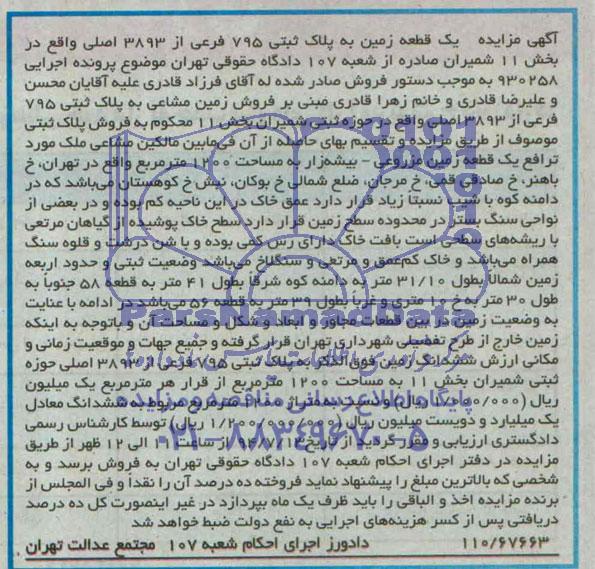 آگهی مزایده یک قطعه زمین به پلاک ثبتی ۷۹۵ فرعی از ۳۸۹۳ اصلی واقع در
بخش ۱۱ شمیران صادره از شعبه ۱۰۷ دادگاه حقوقی تهران موضوع پرونده اجرایی
۹۳۰۲۵۸ به موجب دستور فروش صادر شده له آقای فرزاد قادری علیه آقایان محسن
و علیرضا قادری و خانم زهرا قادری مبنی بر فروش زمین مشاعی به پلاک ثبتی ۷۹۵
فرعی از ۳۸۹۳ اصلی واقع در حوزه ثبتی شمیران بخش ۱۱ محکوم به فروش پلاک ثبتی
موصوف از طریق مزایده و تقسیم بهای حاصله از آن فی‌مابین مالکین مشاعی ملک مورد
ترافع یک قطعه زمین مزروعی - بیشه‌زار به مساحت ۱۲۰۰ مترمربع واقع در تهران، خ
باهنر، خ صادقی قمی، خ مرجان، ضلع شمالی خ بوکان، نبش خ کوهستان می‌باشد که در
دامنه کوه با شیب نسبتا زیاد قرار دارد عمق خاک در این ناحیه کم بوده و در بعضی از
نواحی سنگ بستر در محدوده سطح زمین قرار دارد سطح خاک پوشیده از گیاهان مرتعی
با ریشه‌های سطحی است بافت خاک دارای رس کمی بوده و با شن درشت و قلوه سنگ
همراه می‌باشد و خاک کم‌عمق و مرتعی و سنگلاخ می‌باشد وضعیت ثبتی و حدود اربعه
زمین شمالاً بطول ۳۱/۱۰ متر به دامنه کوه شرقاً بطول ۴۱ متر به قطعه ۵۸ جنوباً به
طول ۳۰ متر به خ ۱۰ متری و غرباً بطول ۳۹ متر به قطعه ۵۶ می‌باشد در ادامه با عنایت
به وضعیت زمین در بین قطعات مجاور و ابعاد و شکل و مساحت آن و باتوجه به اینکه
زمین خارج از طرح تفصیلی شهرداری تهران قرار گرفته و جمیع جهات و موقعیت زمانی و
مکانی ارزش ششدانگ زمین فوق‌الذکر به پلاک ثبتی ۷۹۵ فرعی از ۳۸۹۳ اصلی حوزه
ثبتی شمیران بخش ۱۱ به مساحت ۱۲۰۰ مترمربع از قرار هر مترمربع یک میلیون
ریال (۱/۰۰۰/۰۰۰ ریال) و نسبت به متراژ ۱۲۰۰ مترمربع مربوط به ششدانگ معادل
یک میلیارد و دویست میلیون ریال (۱/۲۰۰/۰۰۰/۰۰۰ ریال) توسط کارشناس رسمی
دادگستری ارزیابی و مقرر گردید از تاریخ ۹۴/۷/۱۳ از ساعت ۱۰ الی ۱۲ ظهر از طریق
مزایده در دفتر اجرای احکام شعبه ۱۰۷ دادگاه حقوقی تهران به فروش برسد و به
شخصی که بالاترین مبلغ را پیشنهاد نماید فروخته ده درصد آن را نقدا و فی المجلس از
برنده مزایده اخذ و الباقی را باید ظرف یک ماه بپردازد در غیر اینصورت کل ده درصد
دریافتی پس از کسر هزینه‌های اجرایی به نفع دولت ضبط خواهد شد
۱۱۰/۶۷۶۶۳ دادورز اجرای احکام شعبه ۱۰۷ مجتمع عدالت تهران
ParsNamadData
پایگاه اطلاع رسانی مناقصه و مزایده
۰۲۱-۸۸۳۴۹۶۷۰-۵